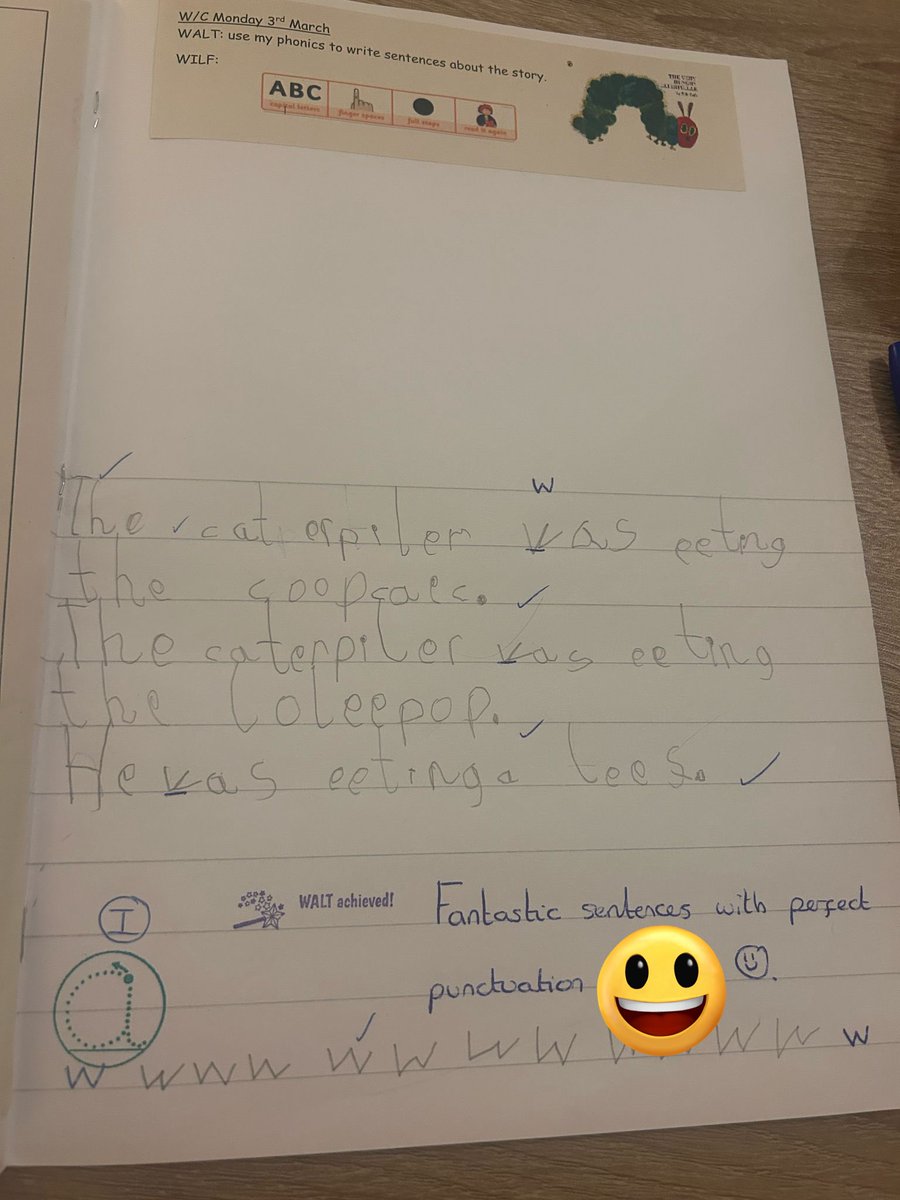 W/C Monday 3rd March
WALT: use my phonics to write sentences about the story.
WILF:
ABC
capital letters finger spaces full stops read it again
THE VERY HUNGRY CATERPILLAR
by Eric Carle
w
The caterpiler vas eetng
the coopcaec.
The caterpiler vas eeting
the loleepop.
He vas eeting a lees.
I
WALT achieved!
Fantastic sentences with perfect
punctuation
a
w w w w w w w w w w w w w